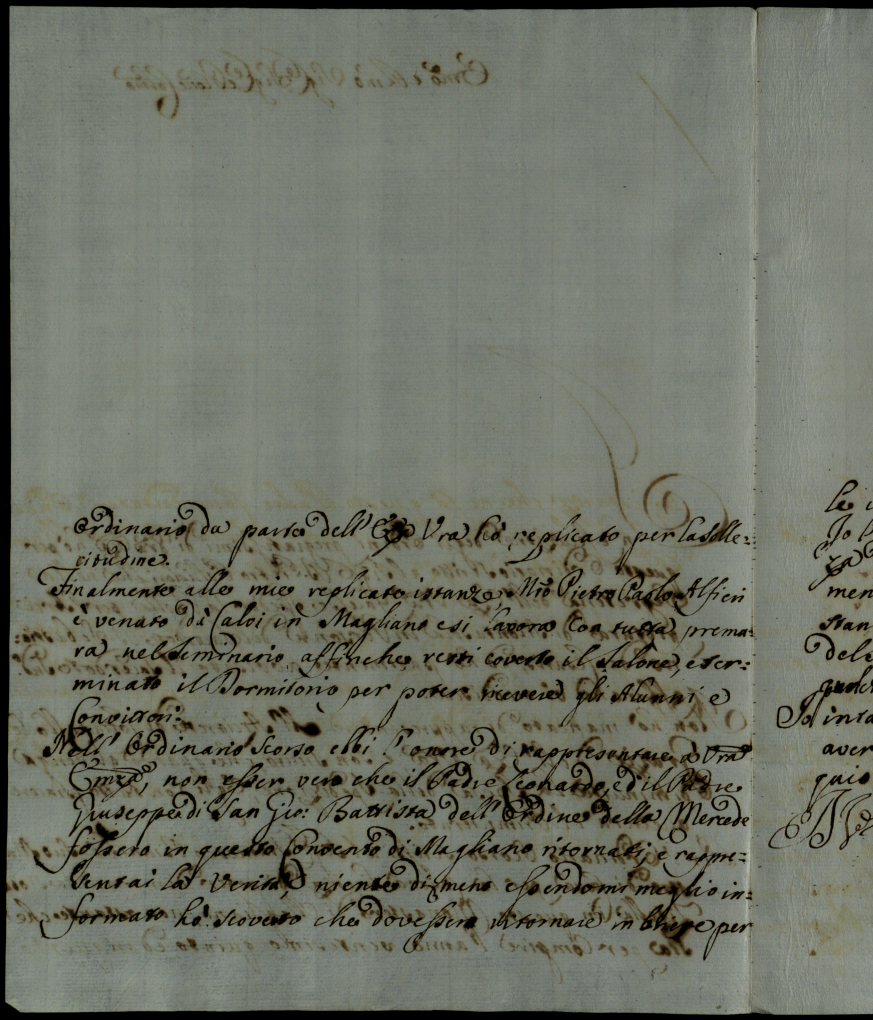 Ordinario da parte dell' Vra hò replicato per la solle=
citudine.
Finalmente alle mie replicate istanze Mrõ Pietro Paolo Alfieri
è venuto dà Calvi in Magliano e si lavora con tutta premu=
ra nel Seminario, affinche resti coverto il Salone, e ter=
minato il Dormitorio per poter ricevere gli Alunni e
Convittori.
Nell' Ordinario scorso ebbi l'onore di rappresentare a Vrã
Emzã, non esser vero che il Padre Leonardo, ed il Padre
Giuseppe di San Gio: Battista dell' Ordine della Mercede
fossero in questo Convento di Magliano ritornati; e rappre=
sentai la verità, niente di meno essendomi meglio in=
formato hò scoverto che dovessero ritornare in breve per
le
Jo
men
stan
dele
Jo
aver
quio